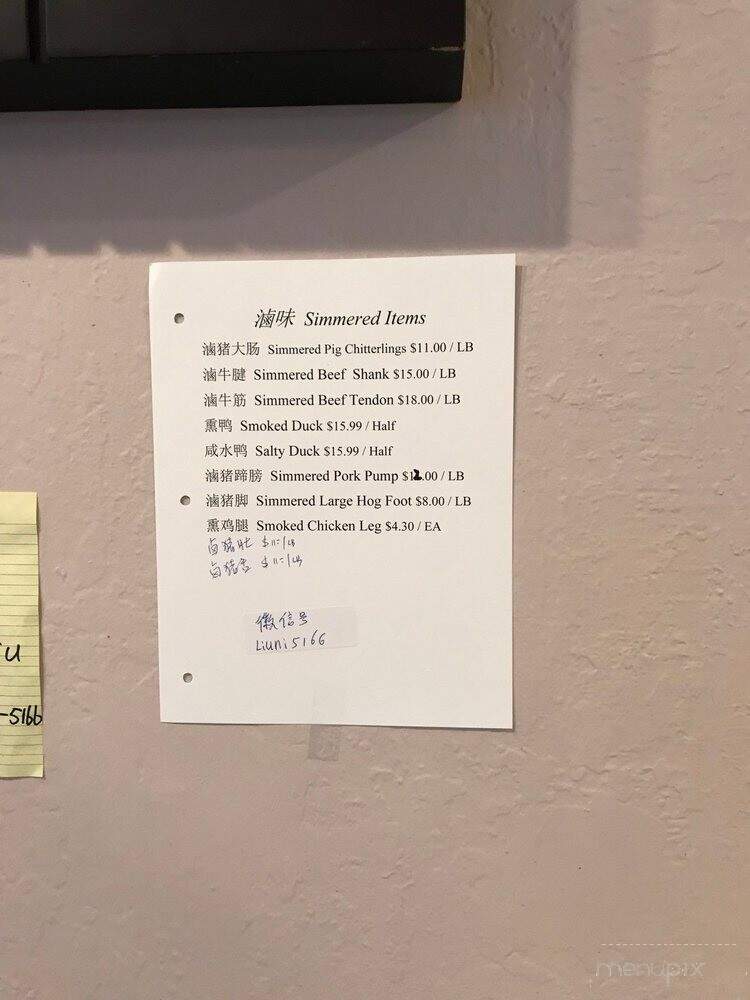 滷味 Simmered Items
滷猪大肠 Simmered Pig Chitterlings $11.00 / LB
滷牛腱 Simmered Beef Shank $15.00 / LB
滷牛筋 Simmered Beef Tendon $18.00 / LB
熏鸭 Smoked Duck $15.99 / Half
咸水鸭 Salty Duck $15.99 / Half
滷猪蹄膀 Simmered Pork Pump $12.00 / LB
滷猪脚 Simmered Large Hog Foot $8.00 / LB
熏鸡腿 Smoked Chicken Leg $4.30 / EA
卤猪肚 $11 / LB
卤猪舌 $11 / LB
微信号
Liuni5166
u
-5166
menupix